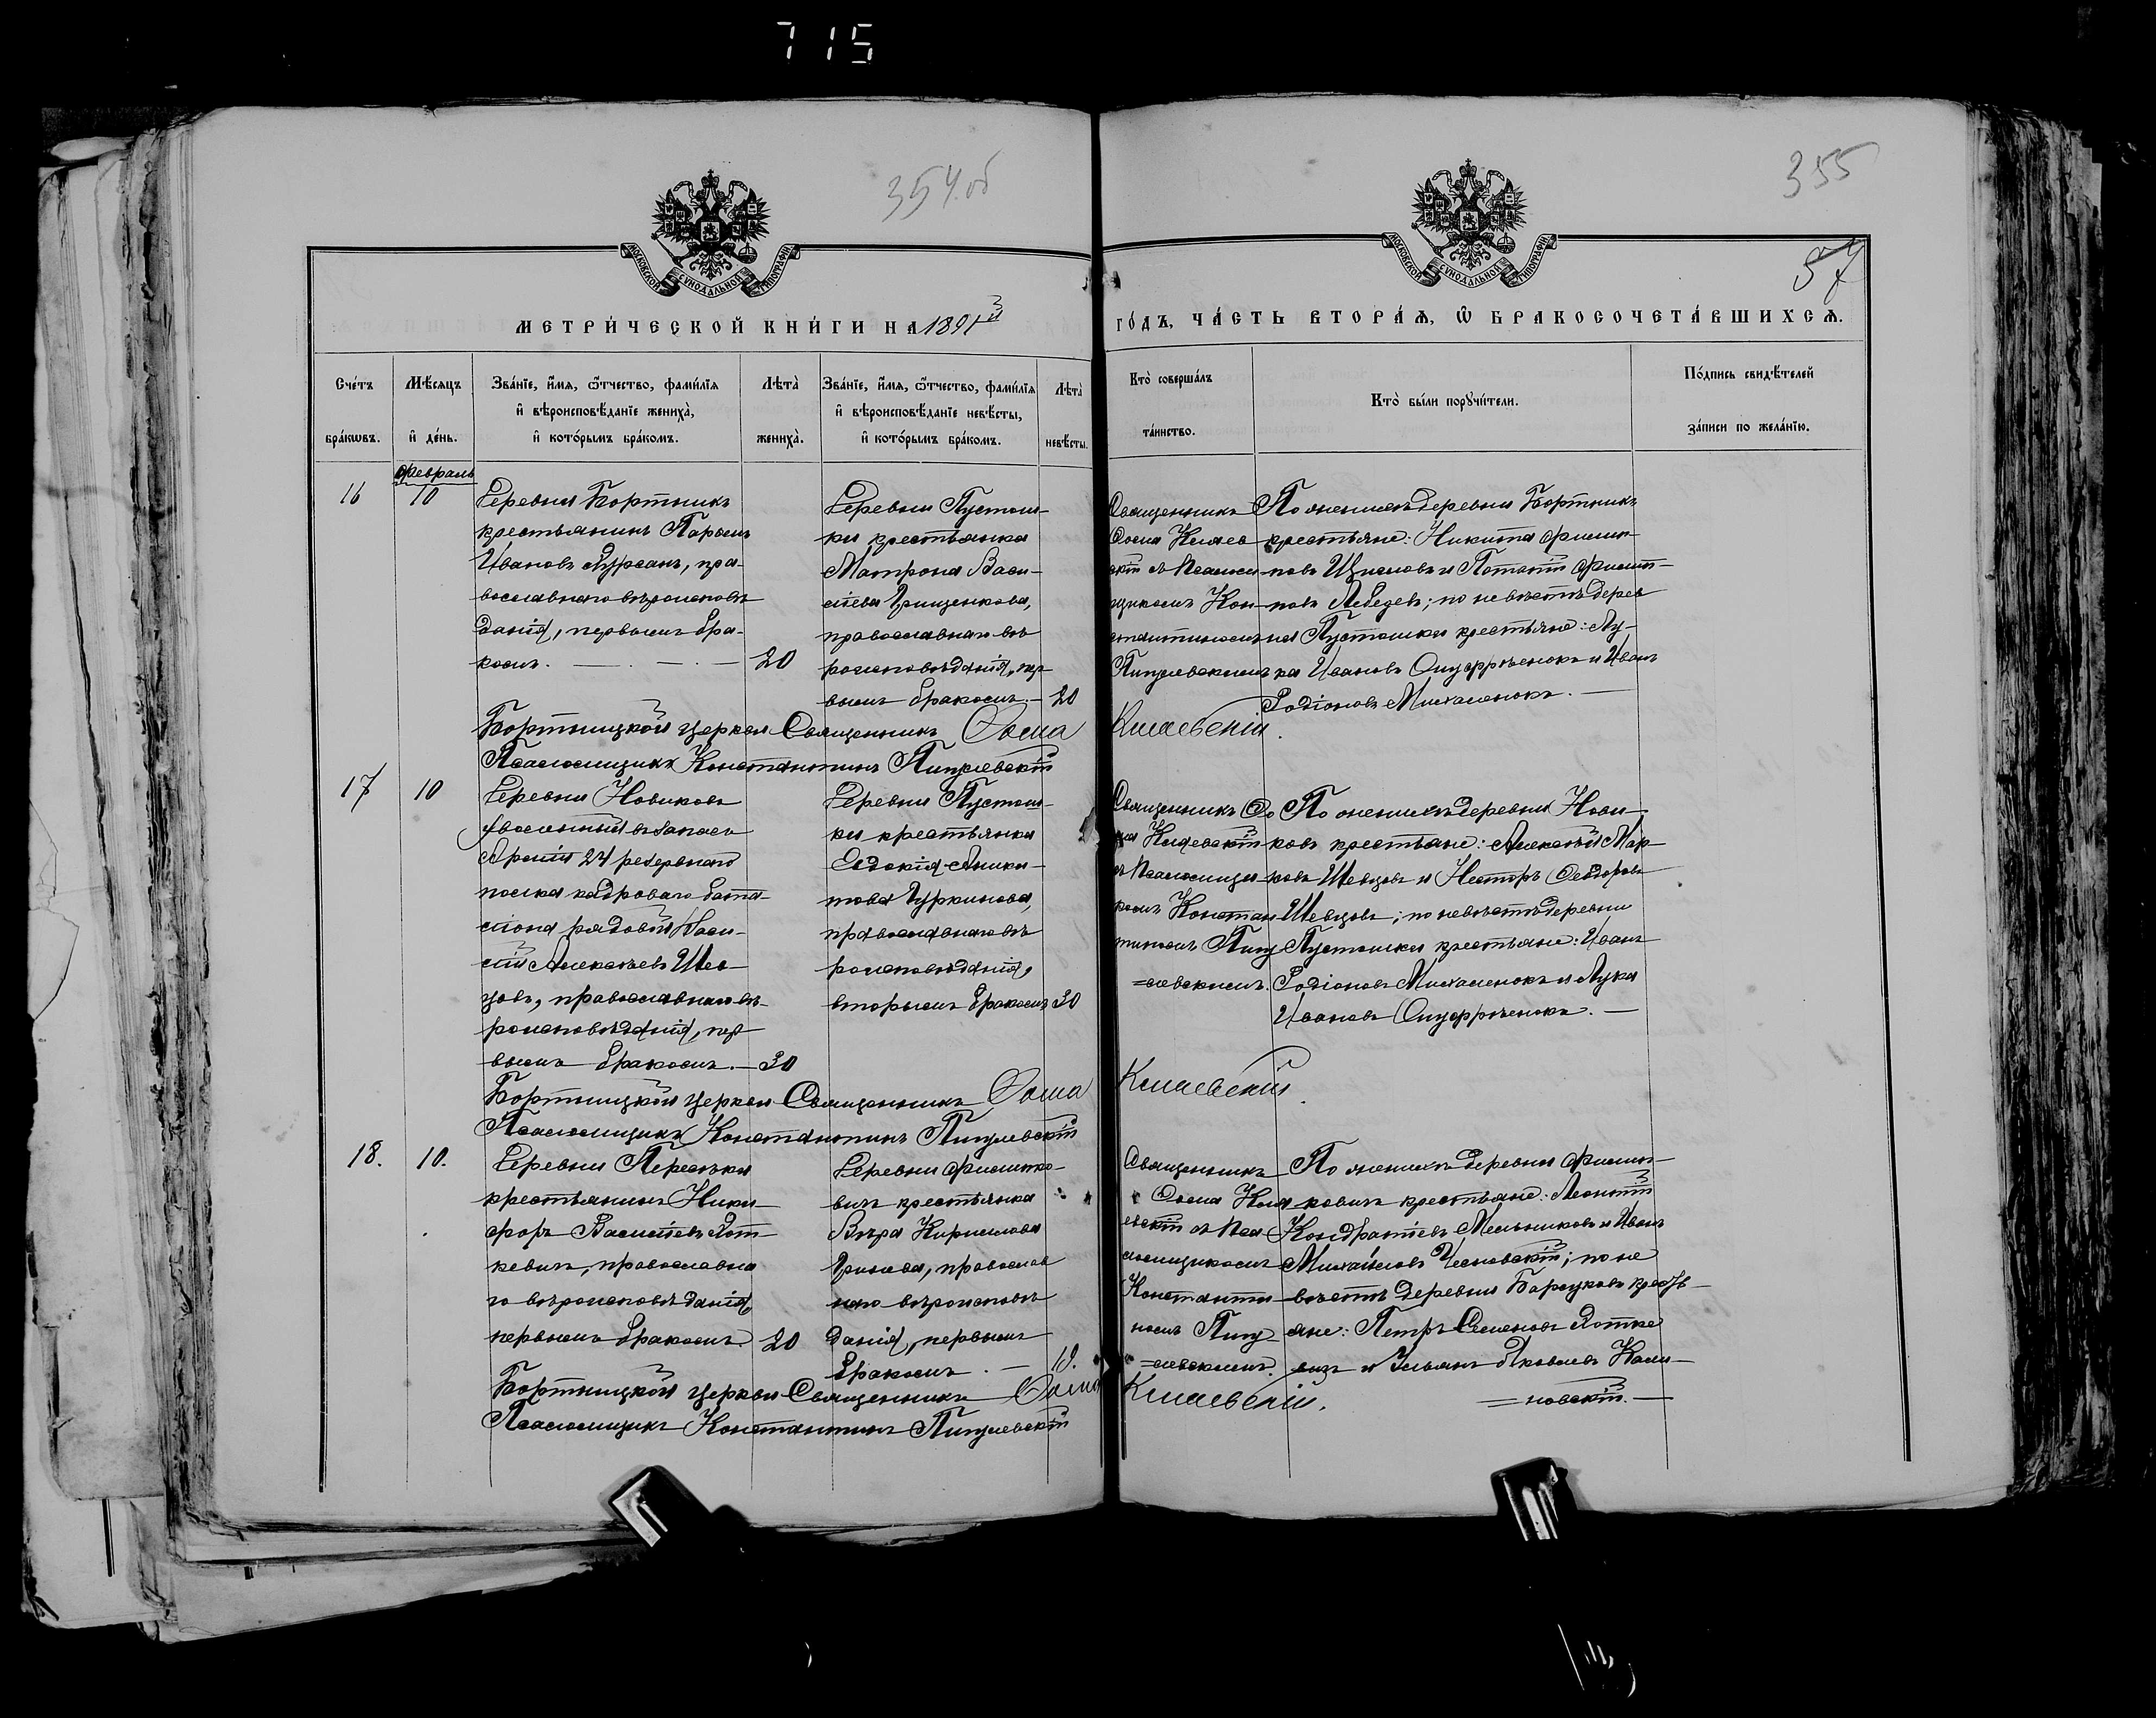 715
354.об
355
57
МЕТРИ́ЧЕСКОЙ КНИ́ГИ НА 1891й
ГО́ДЪ, ЧА́СТЬ ВТОРА́Я, Ѡ БРАКОСОЧЕТА́ВШИХСЯ.
Сче́тъ бра́кѡвъ.
Мѣ́сяцъ и де́нь.
Зва́нїе, и́мя, ѻ҆́тчество, фами́лїя
и вѣроисповѣ́данїе жениха̀,
и кото́рымъ бра́комъ.
Лѣта̀ жениха̀.
Зва́нїе, и́мя, ѻ҆́тчество, фами́лїя
и вѣроисповѣ́данїе невѣ́сты,
и кото́рымъ бра́комъ.
Лѣта̀ невѣ́сты.
Кто̀ соверша́лъ
та́инство.
Кто̀ бы́ли пору́чи́тели.
По́дпись свидѣ́телей
за́писи по жела́нїю.
Февраль
16
10
Деревни Бортникъ
крестьянинъ
Ивановъ
православнаго вѣроисповѣ
данія, первымъ бра-
комъ. 20
Деревни Пустош-
ки крестьянка
Матрона Васи-
льева Грищенкова,
православнаго вѣ
роисповѣданія, пер
вымъ бракомъ. — 20
Священникъ
Ѳома Кмаев
скій съ Псалом
щикомъ Кон-
стантиномъ
Пигулевскимъ
По женихѣ деревни Бортникъ
крестьяне: Никита Филип-
повъ и Потапій Филип-
повъ Лебедевъ; по невѣстѣ дерев
ни Пустошки крестьяне: Лу-
ка Ивановъ Онуфрѣенокъ и Иванъ
Родіоновъ Михаленокъ. —
Бортницкой церкви Священникъ Ѳома Кмаевскій.
Псаломщикъ Константинъ Пигулевскій
17
10
Деревни Новиковъ
уволенный въ запасъ
Арміи 24 резервнаго
полка кадроваго бата-
ліона рядовой Васи-
лій Алексѣевъ Шев-
цовъ, православнаго вѣ-
роисповѣданія, пер
вымъ бракомъ. — 30
Деревни Пустош-
ки крестьянка
Евдокія Аники-
това Гуркинова,
православнаго вѣ
роисповѣданія,
вторымъ бракомъ 30
Священникъ Ѳо
ма Кмаевскій
съ Псаломщи
комъ Констан
тиномъ Пигу
=левскимъ.
По женихѣ деревни Нови-
ковъ крестьяне: Алексѣй Мар-
ковъ Шевцовъ и Несторъ Ѳеодоровъ
Шевцовъ; по невѣстѣ деревни
Пустошки крестьяне: Иванъ
Родіоновъ Михаленокъ и Лука
Ивановъ Онуфрѣенокъ. —
Бортницкой церкви Священникъ Ѳома Кмаевскій.
Псаломщикъ Константинъ Пигулевскій
18.
10.
Деревни
крестьянинъ Ники-
форъ Васильевъ Рот
кевичъ, православна
го вѣроисповѣданія,
первымъ бракомъ 20
Деревни Филипко-
вичъ крестьянка
Вѣра Кириллова
православ
наго вѣроисповѣ
данія, первымъ
бракомъ. — 19.
Священникъ
Ѳома Кма
евскій съ Пса
ломщикомъ
Константи
номъ Пигу
=левскимъ.
По женихѣ деревни Филип-
ковичъ крестьяне: Леонтій
Кондратьевъ Мельниковъ и Иванъ
Михайловъ; по не
вѣстѣ деревни Барсуковъ кресть
яне: Петръ Семеновъ Ротке
вичъ и Ульянъ Яковлевъ Кали-
=новскій. —
Бортницкой церкви Священникъ Ѳома Кмаевскій.
Псаломщикъ Константинъ Пигулевскій